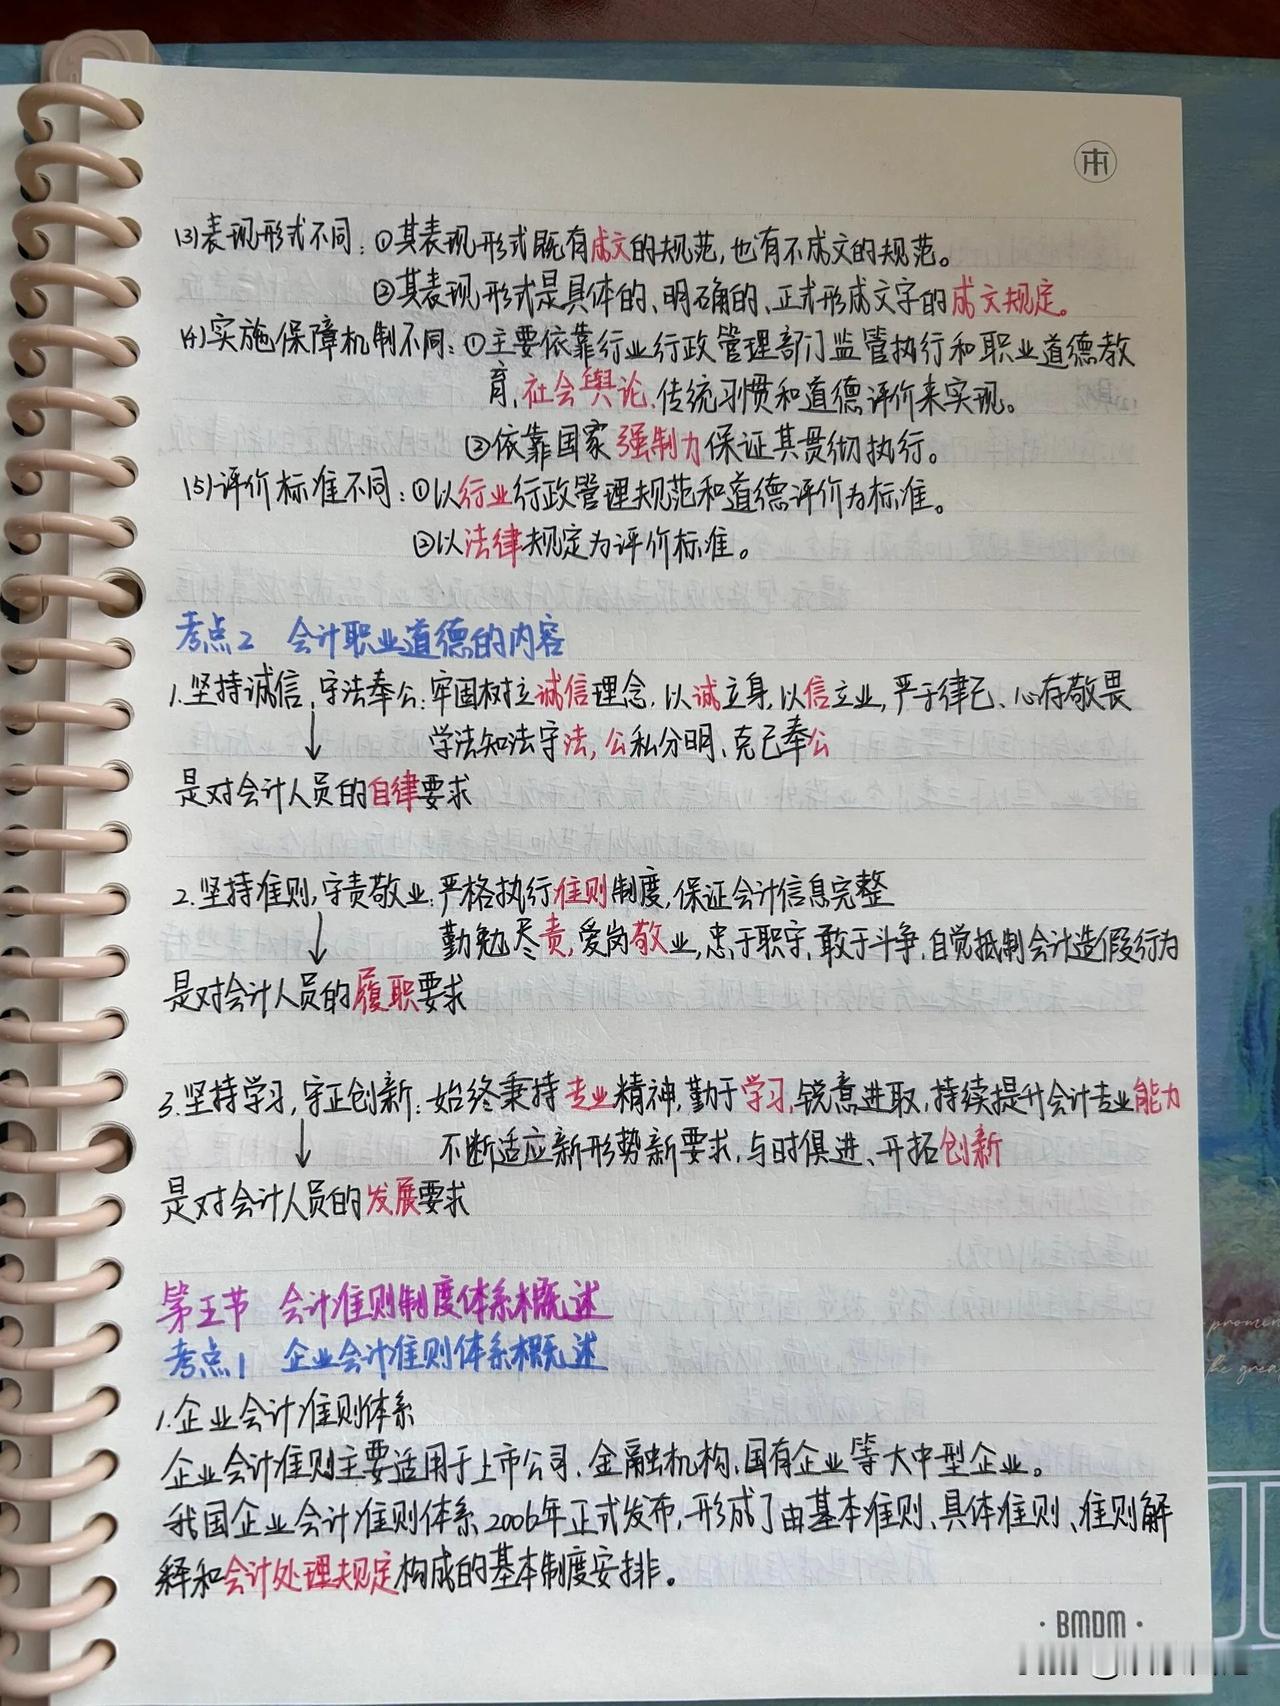 (3)表现形式不同：①其表现形式既有成文的规范，也有不成文的规范。
②其表现形式是具体的、明确的、正式形成文字的成文规定。
(4)实施保障机制不同：①主要依靠行业行政管理部门监管执行和职业道德教
育、社会舆论、传统习惯和道德评价来实现。
②依靠国家强制力保证其贯彻执行。
(5)评价标准不同：①以行业行政管理规范和道德评价为标准。
②以法律规定为评价标准。
考点2 会计职业道德的内容
1.坚持诚信，守法奉公：牢固树立诚信理念，以诚立身，以信立业，严于律己、心存敬畏
学法知法守法，公私分明、克己奉公
是对会计人员的自律要求
2.坚持准则，守责敬业：严格执行准则制度，保证会计信息完整
勤勉尽责，爱岗敬业，忠于职守，敢于斗争，自觉抵制会计造假行为
是对会计人员的履职要求
3.坚持学习，守正创新：始终秉持专业精神，勤于学习，锐意进取，持续提升会计专业能力
不断适应新形势新要求，与时俱进、开拓创新
是对会计人员的发展要求
第五节 会计准则制度体系概述
考点1 企业会计准则体系概述
1.企业会计准则体系
企业会计准则主要适用于上市公司、金融机构、国有企业等大中型企业。
我国企业会计准则体系2006年正式发布，形成了由基本准则、具体准则、准则解
释和会计处理规定构成的基本制度安排。
·BMDM·